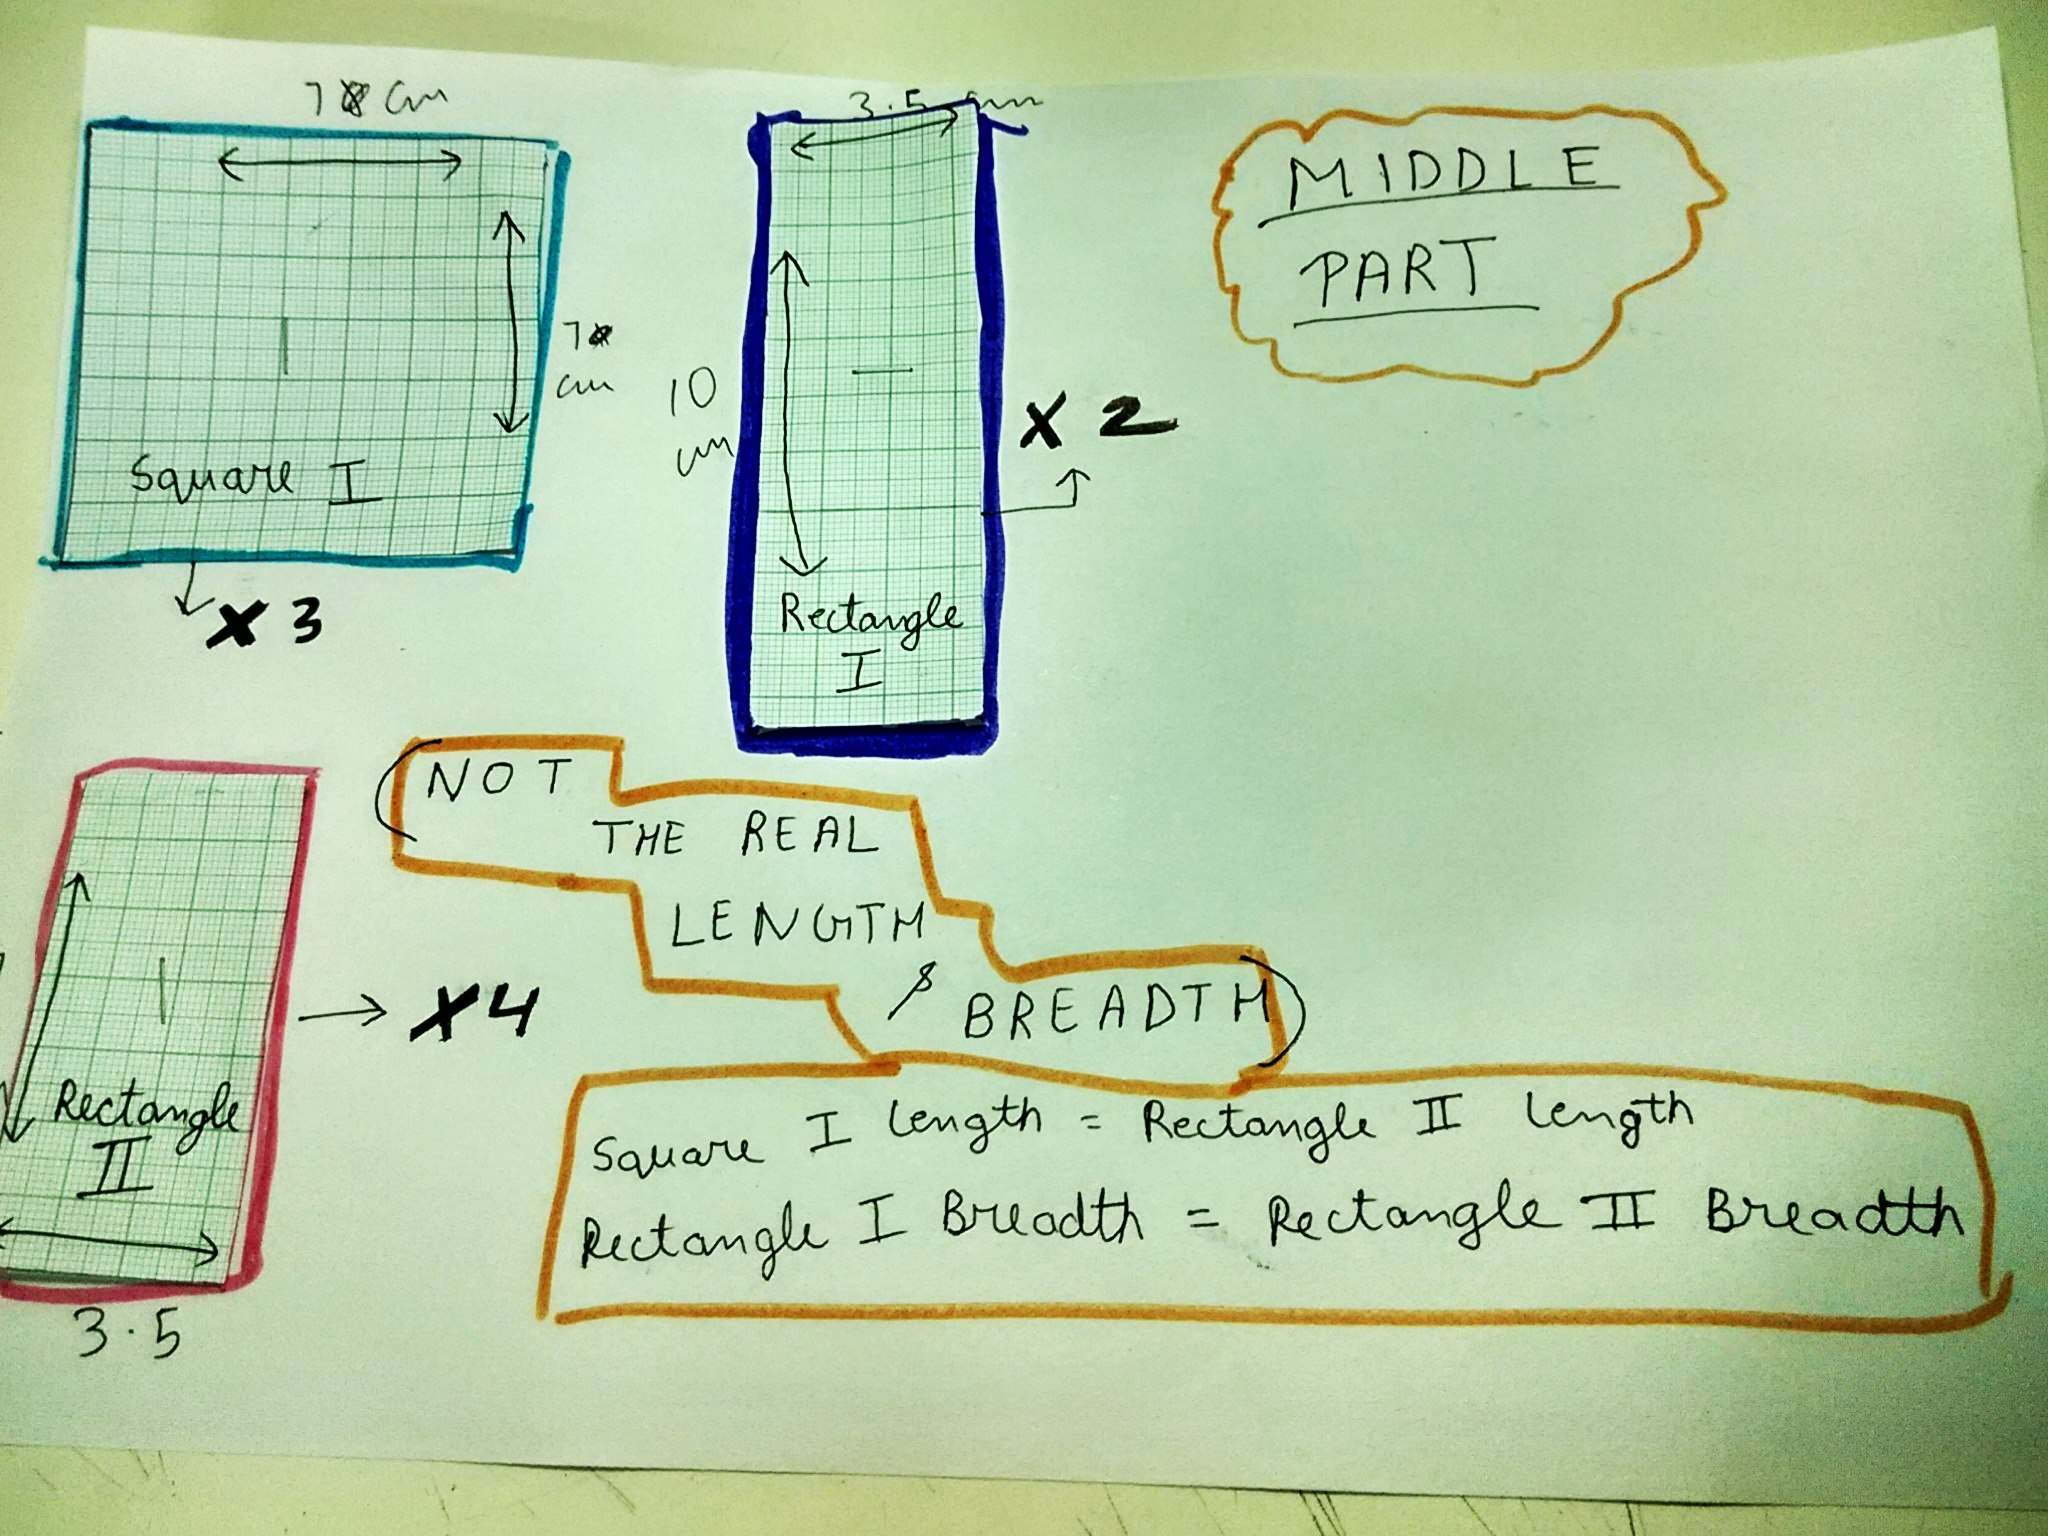 7 cm
3.5 cm
MIDDLE
PART
7
cm
10
cm
X 2
Square I
X 3
Rectangle
I
(NOT
THE REAL
LENGTH
& BREADTH)
X4
Rectangle
II
3.5
Square I length = Rectangle II length
Rectangle I Breadth = Rectangle II Breadth